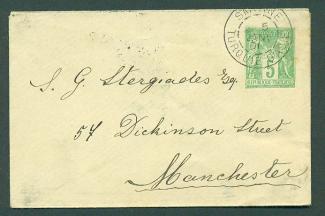 SMYRNE
5
TURQUIE
5
S. G. Stergiades Esq.
54 Dickinson Street
Manchester